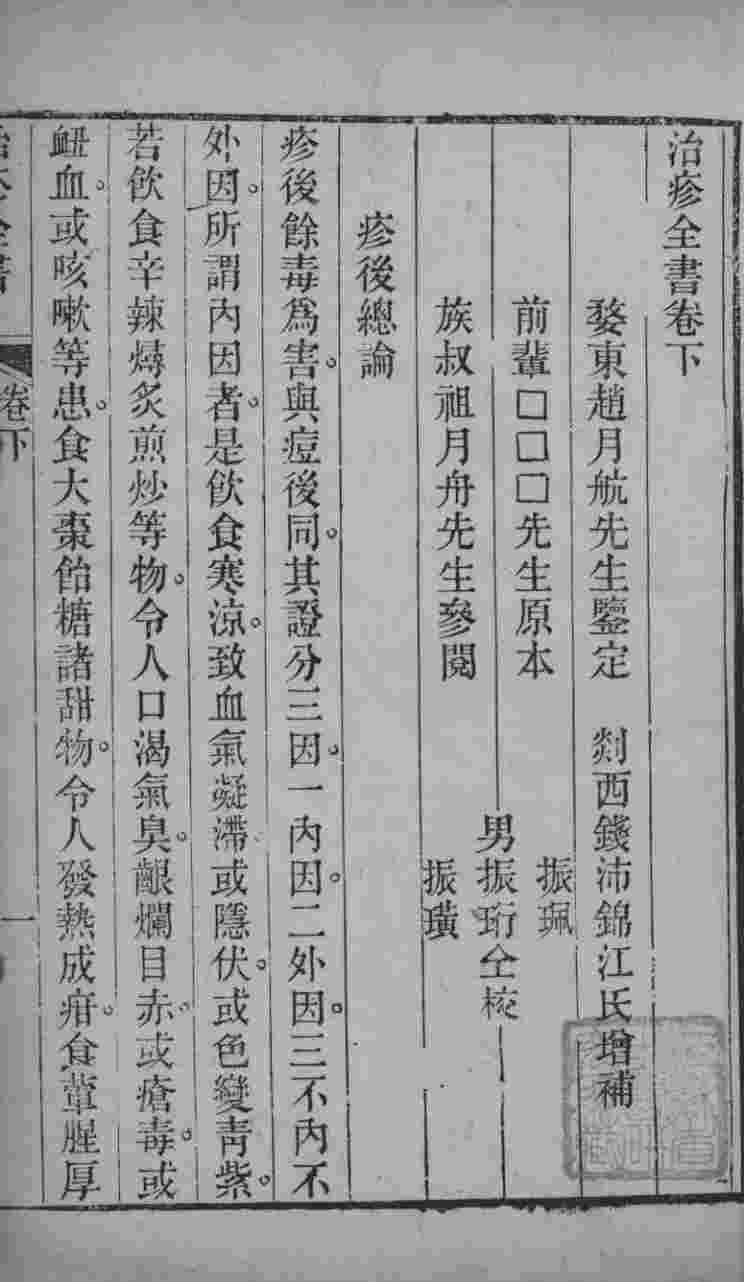 治疹全書卷下
婺東趙月航先生鑒定　剡西錢沛錦江氏增補
前輩□□□先生原本
族叔祖月舟先生參閱
振珮
男振珩仝校
振璜
疹後總論
疹後餘毒爲害。與痘後同。其證分三因。一內因。二外因。三不內不
外因。所謂內因者。是飲食寒涼。致血氣凝滯或隱伏。或色變靑紫。
若飲食辛辣燖炙煎炒等物。令人口渴氣臭。齦爛目赤。或瘡毒。或
衄血。或咳嗽等患。食大棗飴糖諸甜物。令人發熱成疳。食葷腥厚
治疹全書
卷下
一